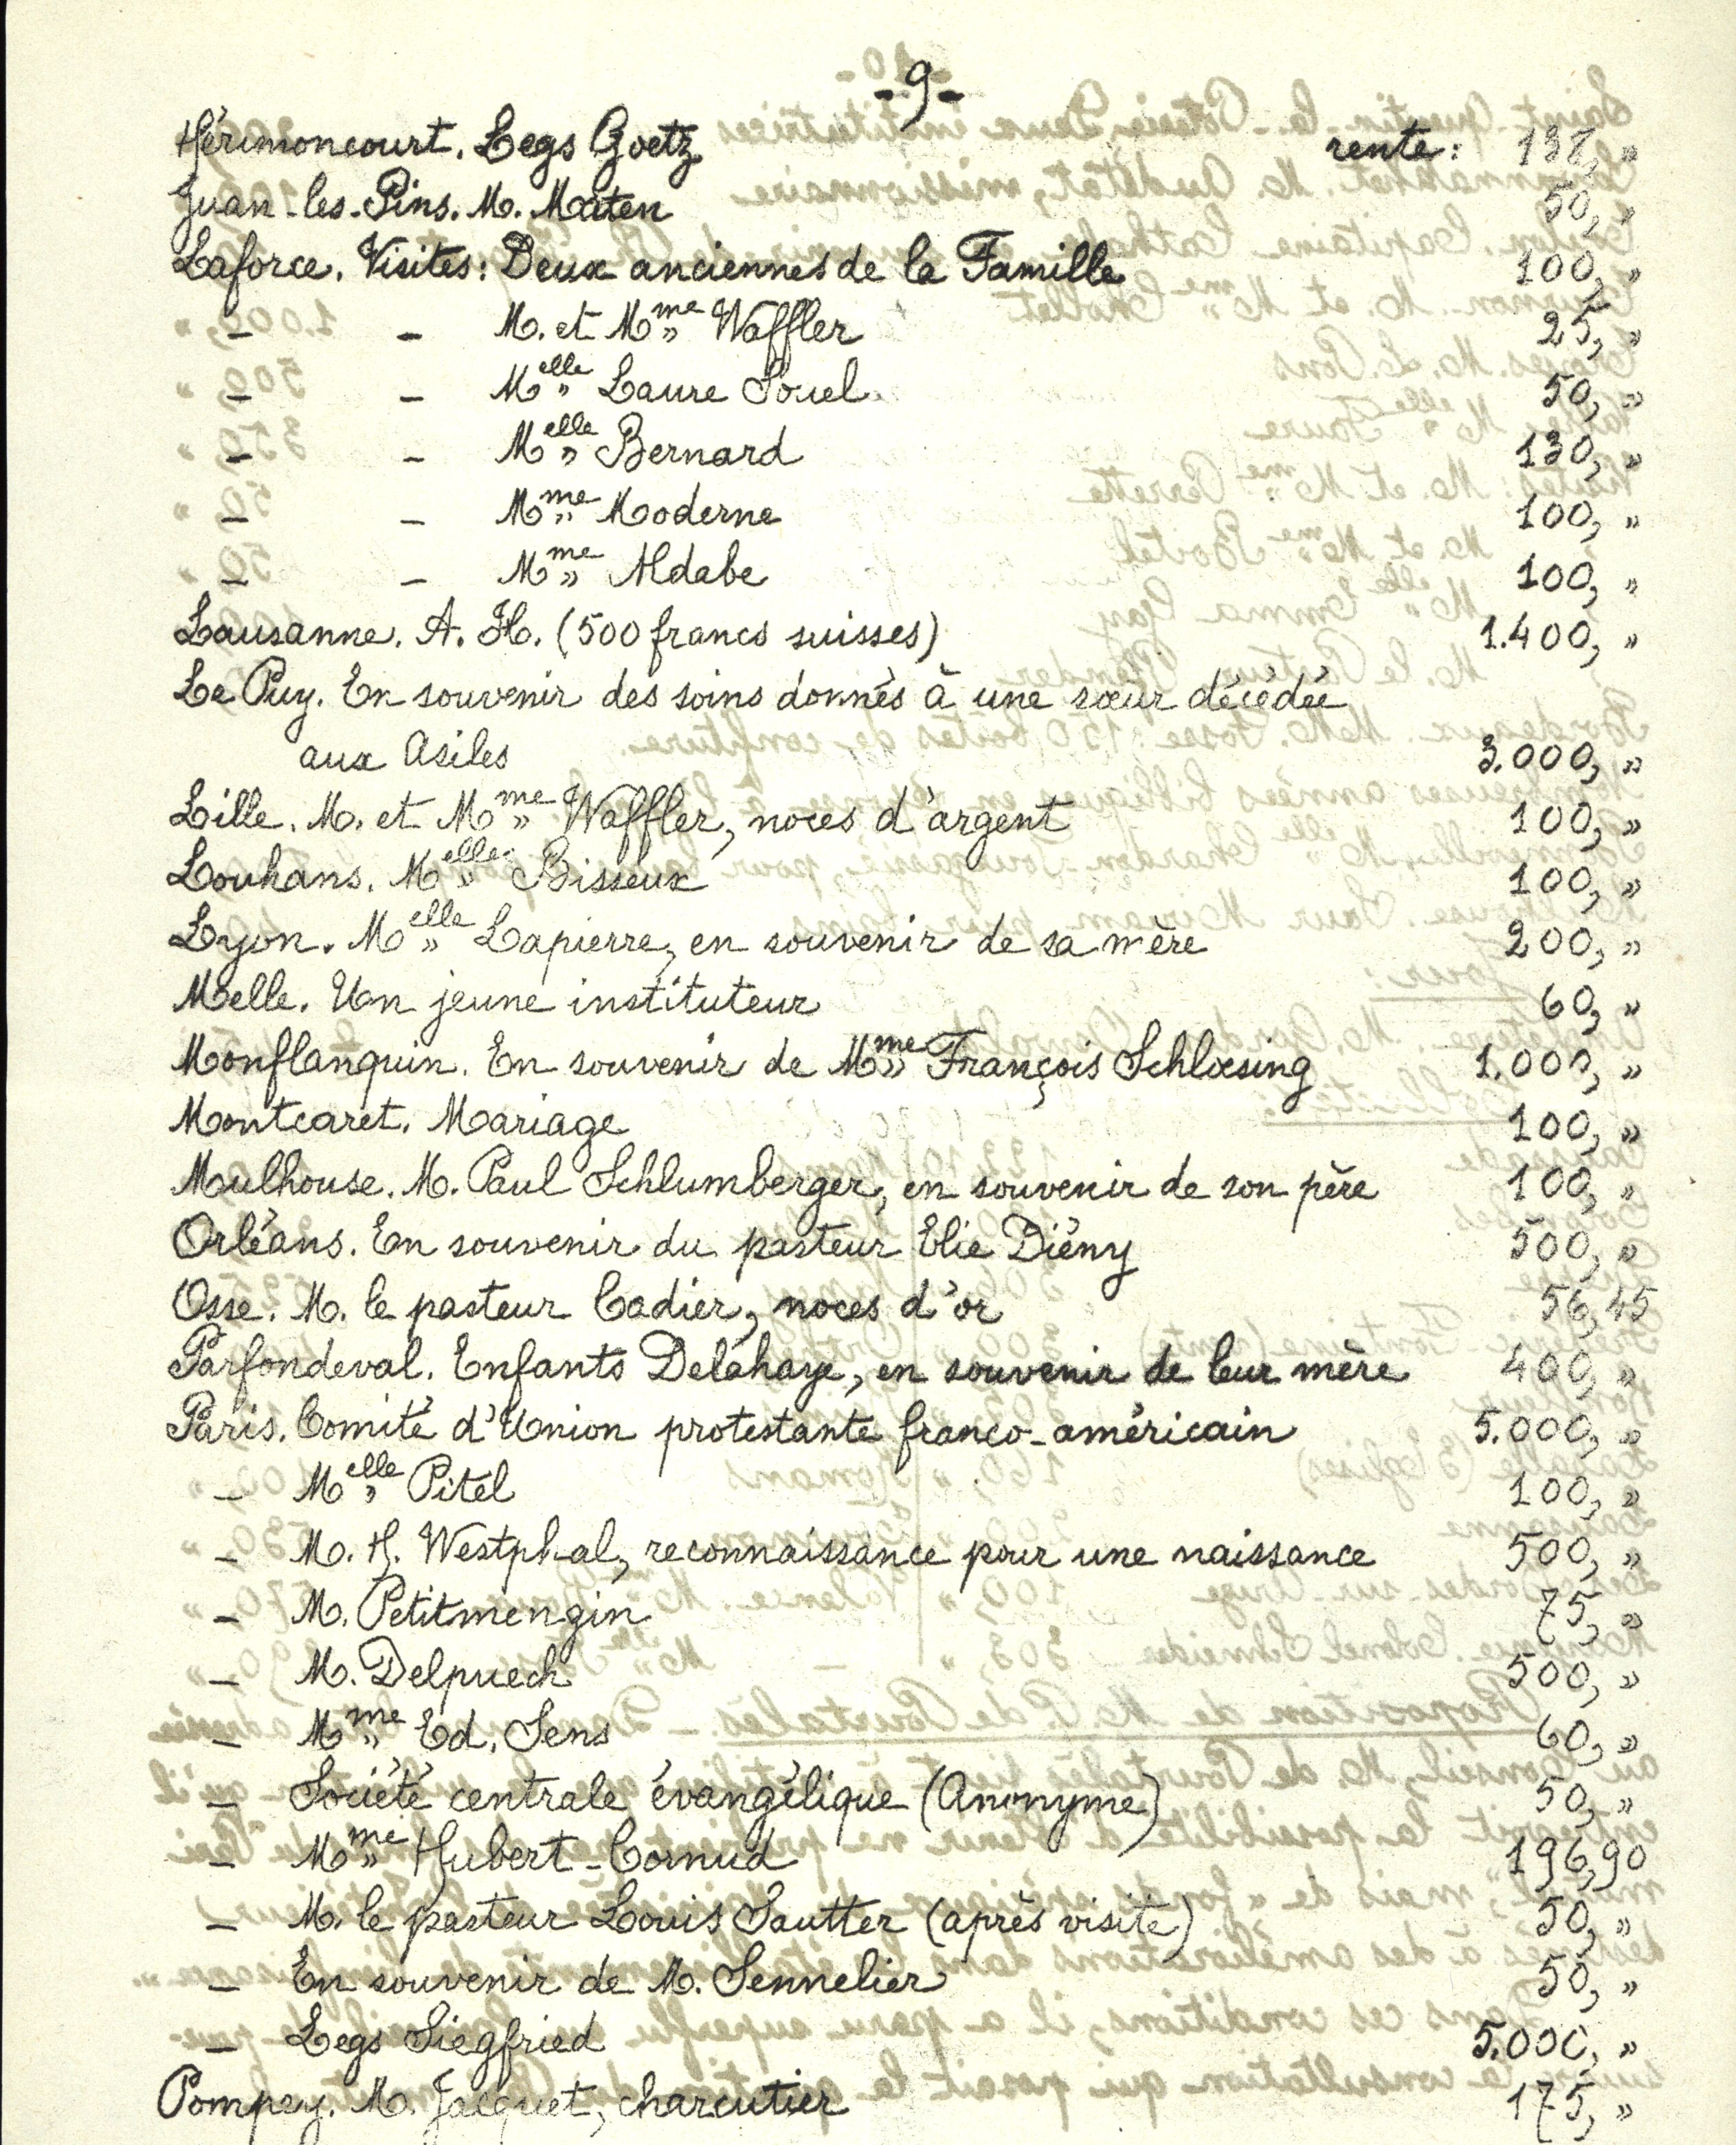 - 9 -
Hérimoncourt. Legs Goetz rente: 132, »
Juan-les-Pins. M. Maten 50, »
Laforce. Visites: Deux anciennes de la Famille 100, »
- - M. et Mme Waffler 25, »
- - Melle Laure Souel 50, »
- - Melle Bernard 130, »
- - Mme Moderne 100, »
- - Mme Aldabe 100, »
Lausanne. A. H. (500 francs suisses) 1.400, »
Le Puy. En souvenir des soins donnés à une sœur décédée
aux Asiles 3.000, »
Lille. M. et Mme Waffler, noces d'argent 100, »
Louhans. Melle Bisseux 100, »
Lyon. Melle Lapierre, en souvenir de sa mère 200, »
Melle. Un jeune instituteur 60, »
Monflanquin. En souvenir de Mme François Schlœsing 1.000, »
Montcaret. Mariage 100, »
Mulhouse. M. Paul Schlumberger, en souvenir de son père 100, »
Orléans. En souvenir du pasteur Elie Diény 500, »
Osse. M. le pasteur Cadier, noces d'or 56,45
Parfondeval. Enfants Delahaye, en souvenir de leur mère 400, »
Paris. Comité d'Union protestante franco-américain 5.000, »
- Melle Pitel 100, »
- M. H. Westphal, reconnaissance pour une naissance 500, »
- M. Petitmengin 75, »
- M. Delpuech 500, »
- Mme Ed. Sens 60, »
- Société centrale évangélique (Anonyme) 50, »
- Mme Hubert-Cornud 196,90
- M. le pasteur Louis Sautter (après visite) 50, »
- En souvenir de M. Sennelier 50, »
- Legs Siegfried 5.000, »
Pompey. M. Jacquet, charcutier 175, »